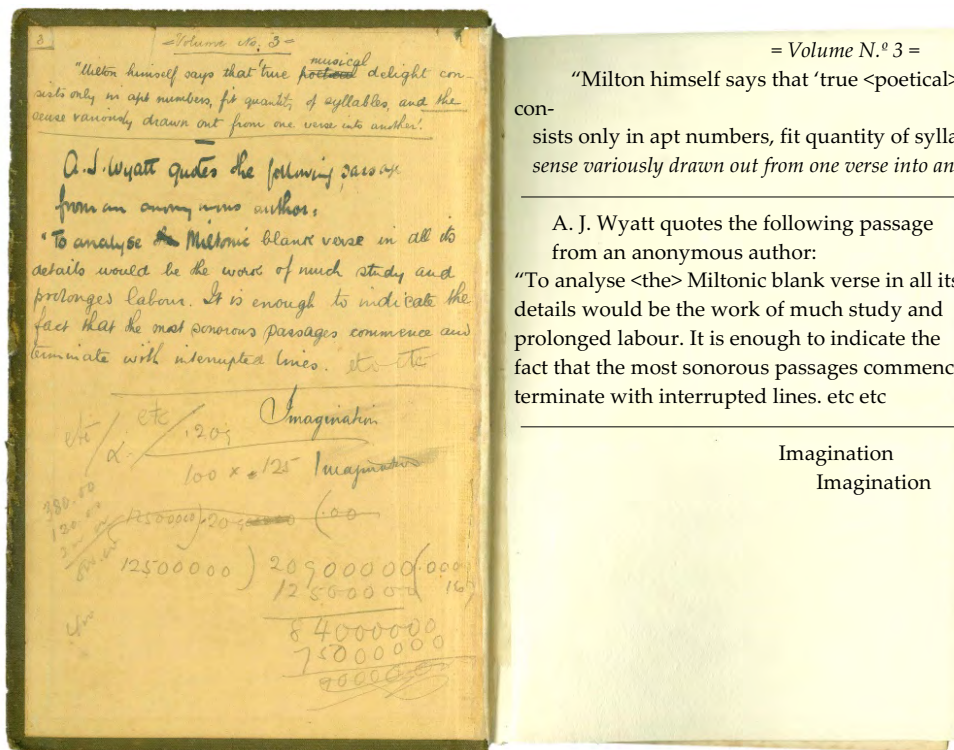 3
= Volume No. 3 =
musical
"Milton himself says that 'true poetical delight con-
sists only in apt numbers, fit quantity of syllables, and the
sense variously drawn out from one verse into another'.
A. J. Wyatt quotes the following passage
from an anonymous author:
"To analyse the Miltonic blank verse in all its
details would be the work of much study and
prolonged labour. It is enough to indicate the
fact that the most sonorous passages commence and
terminate with interrupted lines. etc etc
Imagination
etc / etc / .209
α.
100 × .125 Imagination
380.00
120.00
12500000) .209 (.00
12500000 ) 20900000 (.000
12500000 16
84000000
75000000
9000000
= Volume N.º 3 =
“Milton himself says that ‘true <poetical>
con-
sists only in apt numbers, fit quantity of sylla
sense variously drawn out from one verse into an
A. J. Wyatt quotes the following passage
from an anonymous author:
“To analyse <the> Miltonic blank verse in all its
details would be the work of much study and
prolonged labour. It is enough to indicate the
fact that the most sonorous passages commenc
terminate with interrupted lines. etc etc
Imagination
Imagination